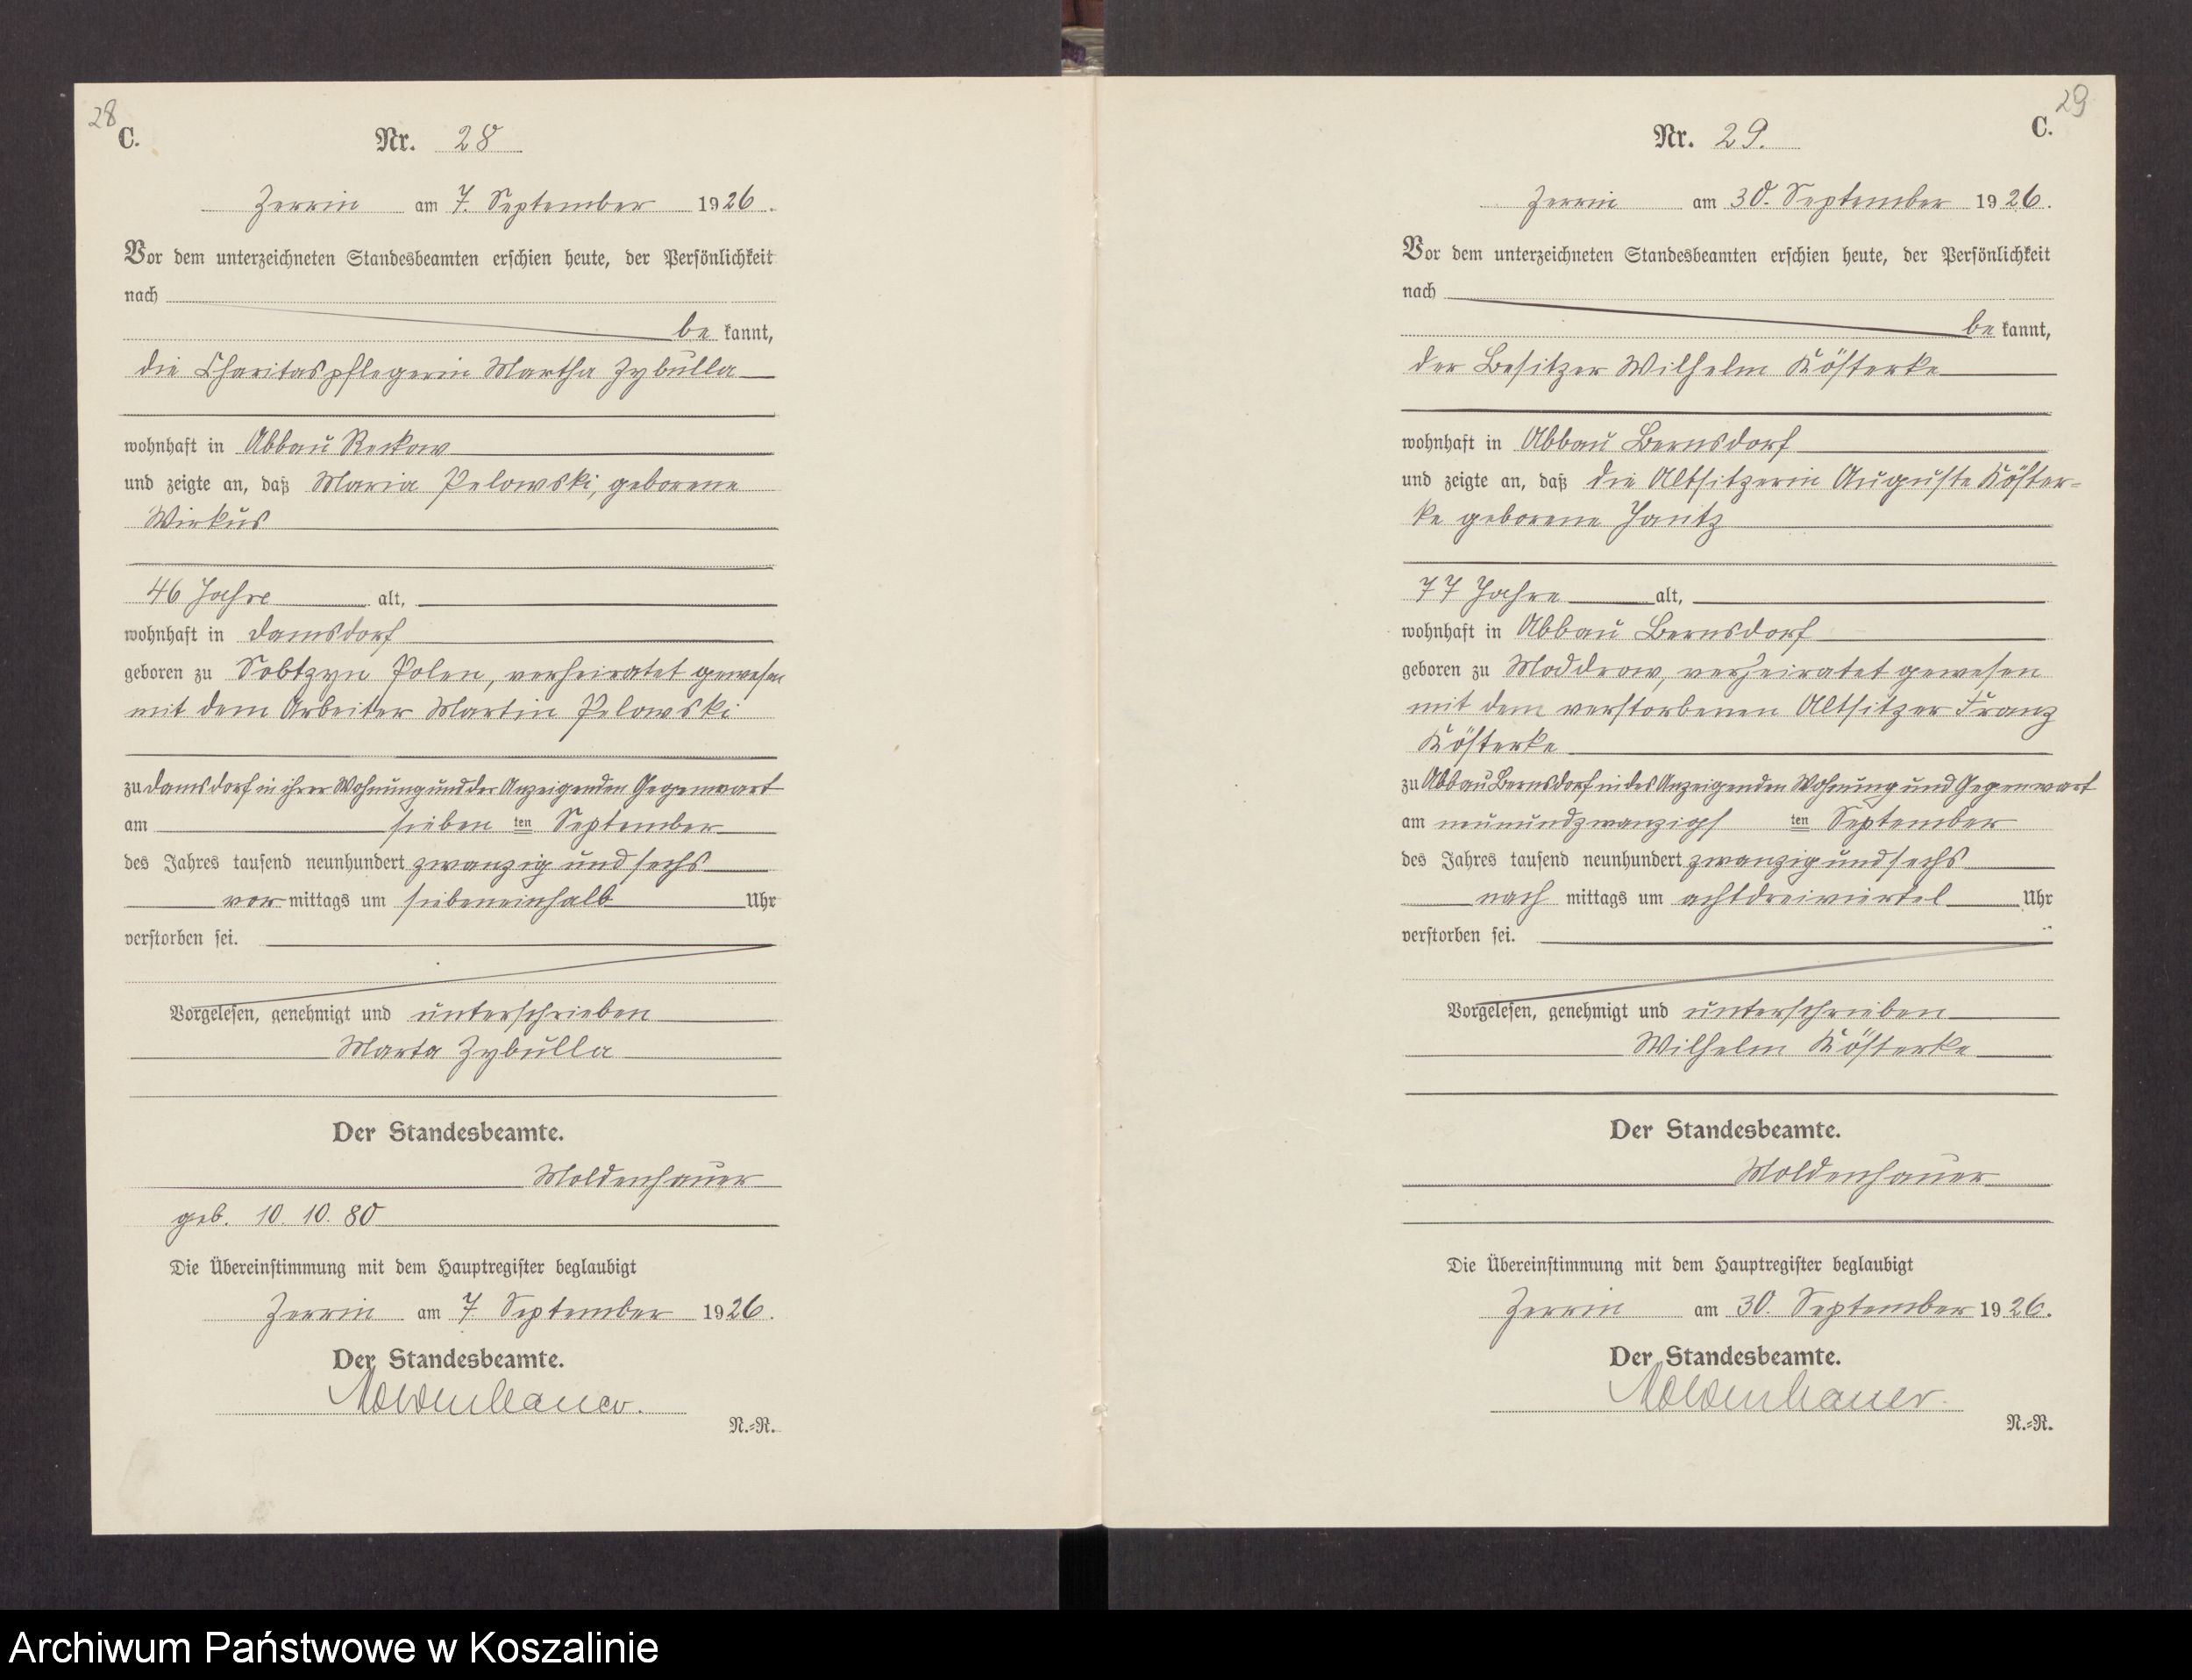 28
C.
Nr. 28
Zerrin am 7. September 1926.
Vor dem unterzeichneten Standesbeamten erschien heute, der Persönlichkeit
nach
be kannt,
die Charitaspflegerin Martha Zybulla
wohnhaft in Abbau Reckow
und zeigte an, daß Maria Pelowski, geborene
Wirkus
46 Jahre alt,
wohnhaft in Damsdorf
geboren zu Sobtzyn Polen, verheiratet gewesen
mit dem Arbeiter Martin Pelowski
zu Damsdorf in ihrer Wohnung und der Anzeigenden Gegenwart
am sieben ten September
des Jahres tausend neunhundert zwanzig und sechs
vor mittags um siebeneinhalb Uhr
verstorben sei.
Vorgelesen, genehmigt und unterschrieben
Marta Zybulla
Der Standesbeamte.
Moldenhauer
geb. 10. 10. 80
Die Übereinstimmung mit dem Hauptregister beglaubigt
Zerrin am 7 September 1926.
Der Standesbeamte.
Moldenhauer.
N.=R.
29
C.
Nr. 29.
Zerrin am 30. September 1926.
Vor dem unterzeichneten Standesbeamten erschien heute, der Persönlichkeit
nach
be kannt,
der Besitzer Wilhelm Kösterke
wohnhaft in Abbau Bernsdorf
und zeigte an, daß die Altsitzerin Auguste Köster=
ke geborene Jantz
77 Jahre alt,
wohnhaft in Abbau Bernsdorf
geboren zu Moddrow, verheiratet gewesen
mit dem verstorbenen Altsitzer Franz
Kösterke
zu Abbau Bernsdorf in des Anzeigenden Wohnung und Gegenwart
am neunundzwanzigs ten September
des Jahres tausend neunhundert zwanzig und sechs
nach mittags um achtdreiviertel Uhr
verstorben sei.
Vorgelesen, genehmigt und unterschrieben
Wilhelm Kösterke
Der Standesbeamte.
Moldenhauer
Die Übereinstimmung mit dem Hauptregister beglaubigt
Zerrin am 30. September 1926.
Der Standesbeamte.
Moldenhauer.
N.=R.
Archiwum Państwowe w Koszalinie